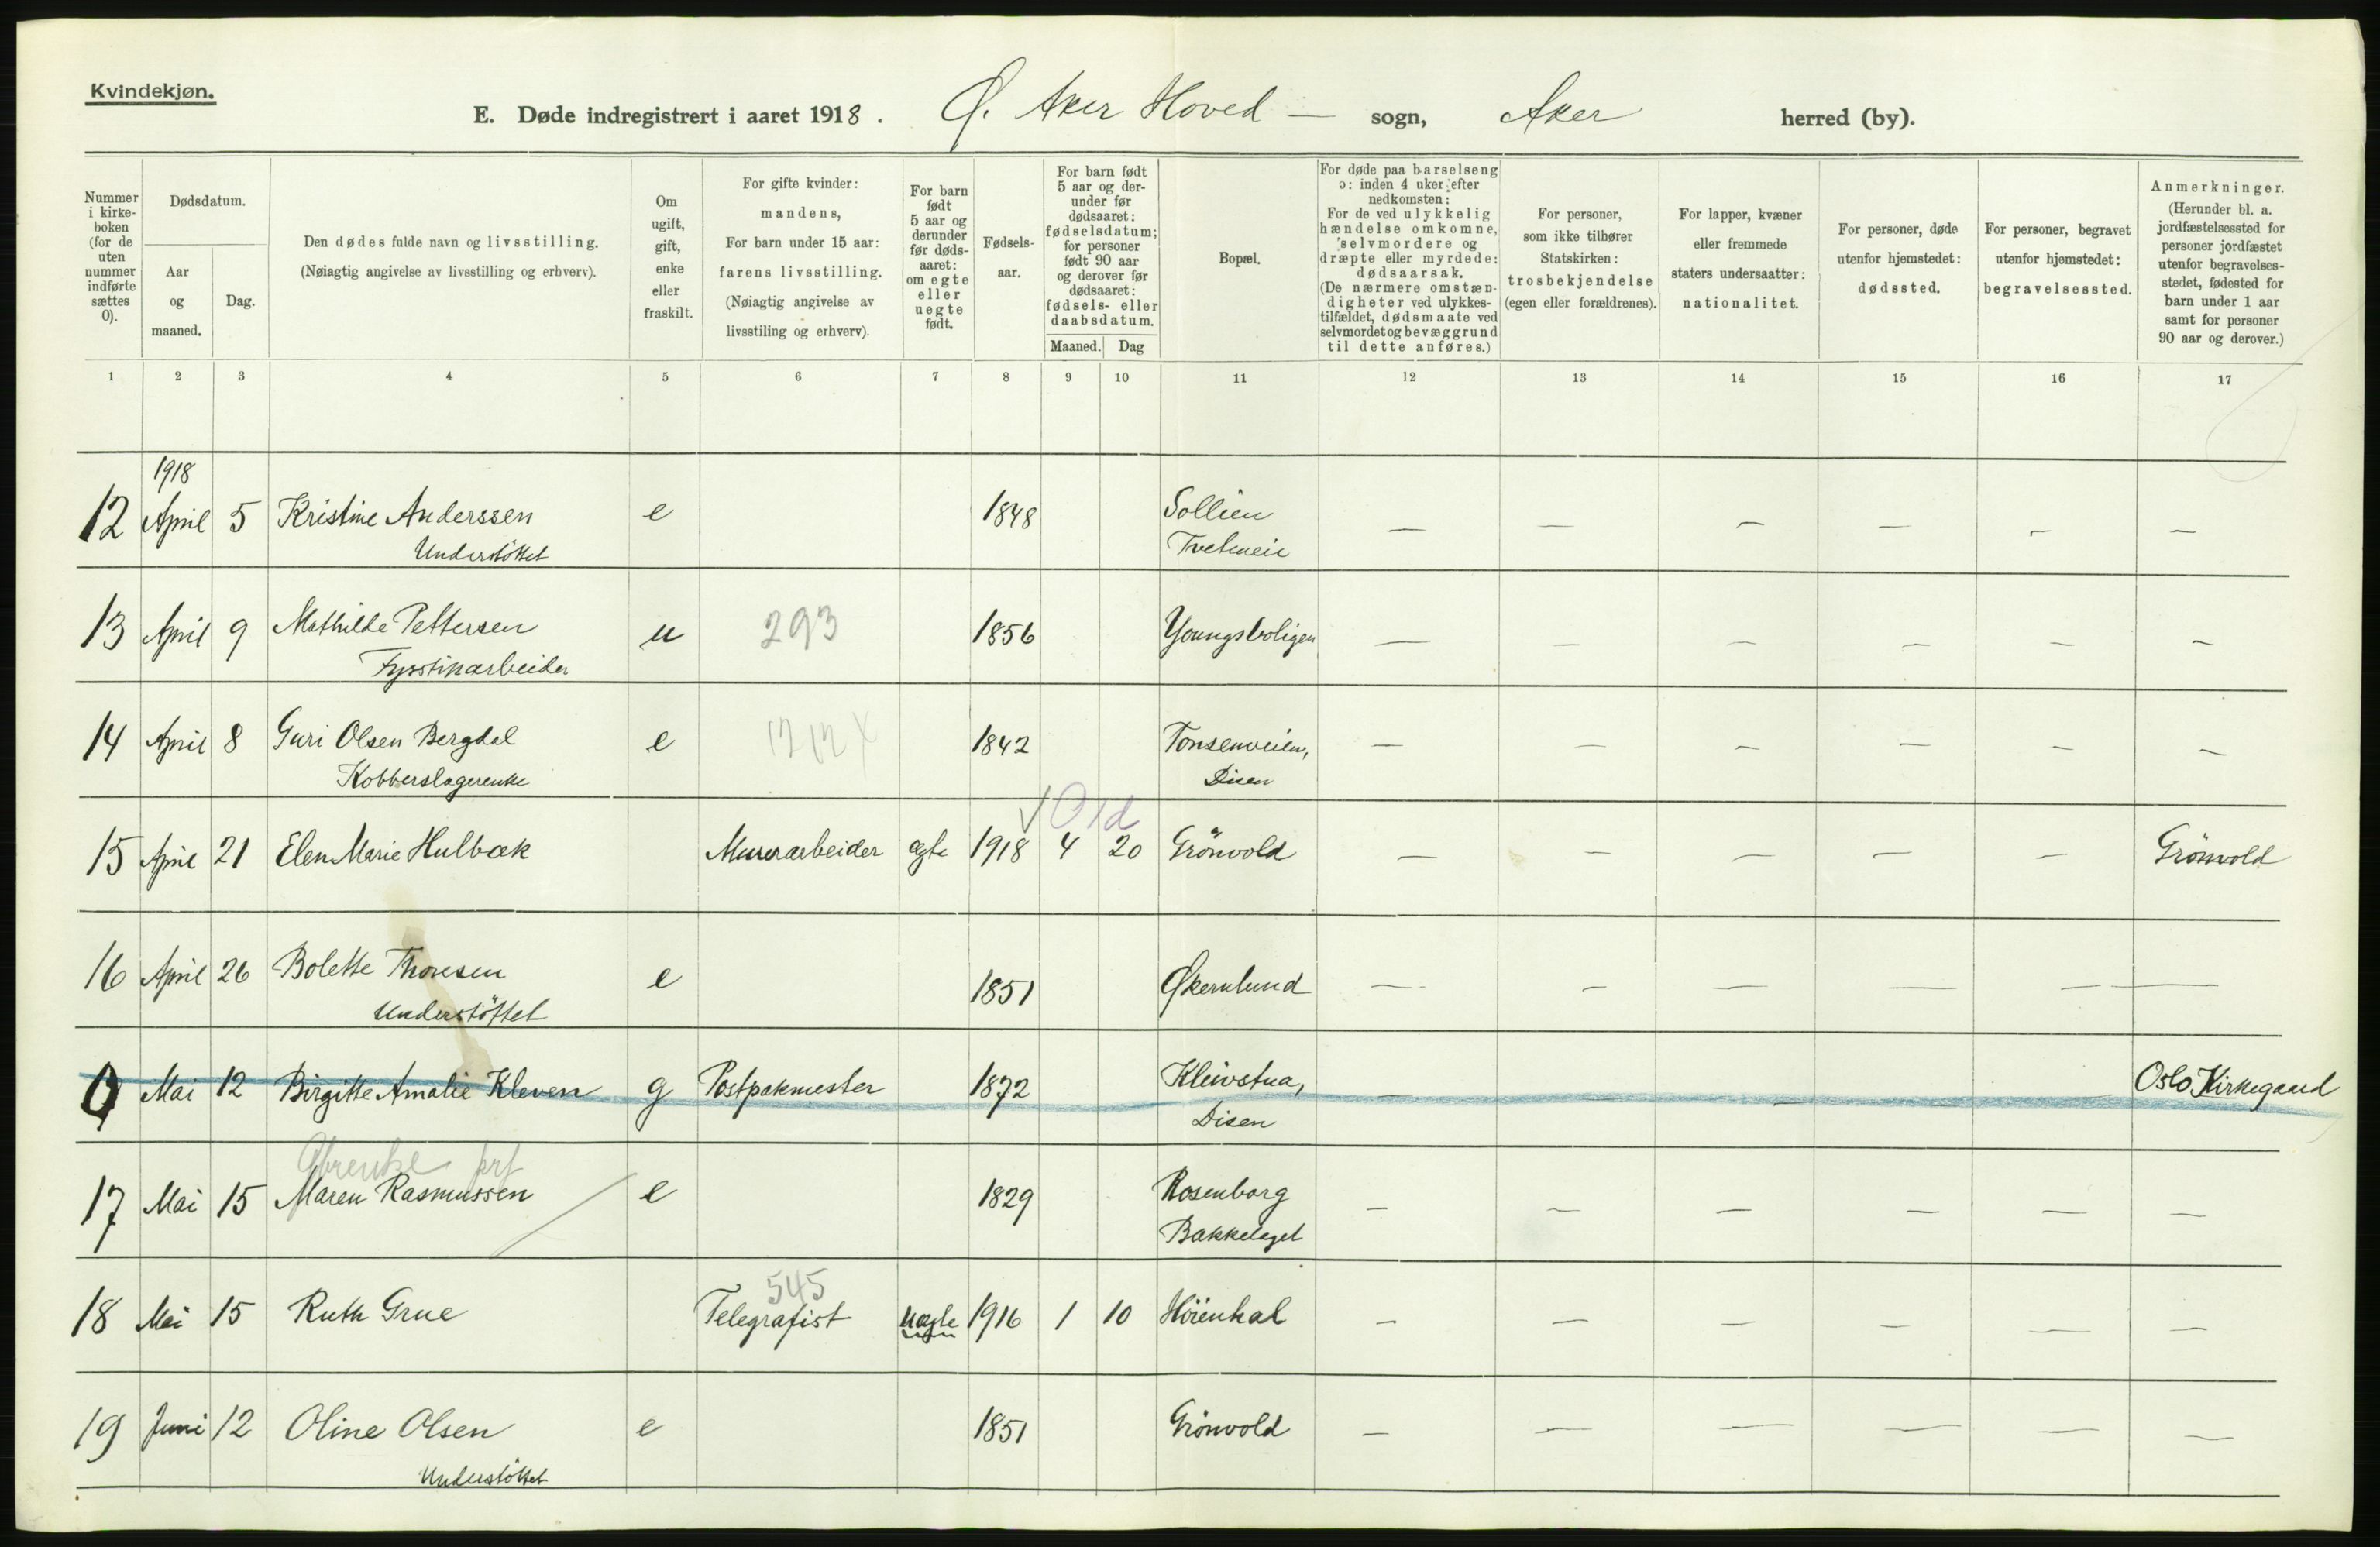 Kvindekjøn.
E. Døde indregistrert i aaret 1918. Ø. Aker Hoved — sogn, Aker herred (by).
Nummer i kirke-boken (for de uten nummer indførte sættes 0).
Dødsdatum.
Aar og maaned.
Dag.
Den dødes fulde navn og livsstilling.
(Nøiagtig angivelse av livsstilling og erhverv).
Om ugift, gift, enke eller fraskilt.
For gifte kvinder: mandens,
For barn under 15 aar: farens livsstilling.
(Nøiagtig angivelse av livsstiling og erhverv).
For barn født 5 aar og derunder før døds-aaret: om egte eller uegte født.
Fødsels-aar.
For barn født 5 aar og der-under før dødsaaret: fødselsdatum; for personer født 90 aar og derover før dødsaaret: fødsels- eller daabsdatum.
Maaned. Dag
Bopæl.
For døde paa barselseng ɔ: inden 4 uker efter nedkomsten:
For de ved ulykkelig hændelse omkomne, selvmordere og dræpte eller myrdede: dødsaarsak.
(De nærmere omstæn-digheter ved ulykkes-tilfældet, dødsmaate ved selvmordet og bevæggrund til dette anføres.)
For personer, som ikke tilhører Statskirken: trosbekjendelse (egen eller forældrenes).
For lapper, kvæner eller fremmede staters undersaatter: nationalitet.
For personer, døde utenfor hjemstedet: dødssted.
For personer, begravet utenfor hjemstedet: begravelsessted.
Anmerkninger.
(Herunder bl. a. jordfæstelsessted for personer jordfæstet utenfor begravelses-stedet, fødested for barn under 1 aar samt for personer 90 aar og derover.)
1 2 3 4 5 6 7 8 9 10 11 12 13 14 15 16 17
1918
12 April 5 Kristine Anderssen e 1848 Sollien — — — — — —
Understöttet Tvetenveie
13 April 9 Mathilde Pettersen u 293 1856 Youngsboligen — — — — — —
Fyrstikarbeider
14 April 8 Guri Olsen Bergdal e 1842 Tonsenveien, — — — — — —
Kobberslagerenke Disen
√ 01d
15 April 21 Elen Marie Hulbæk Murerarbeider ægte 1918 4 20 Grönvold — — — — — Grönvold
16 April 26 Bolette Thoresen e 1851 Økernlund — — — — — —
Understöttet
0 Mai 12 Birgitte Amalie Kleven g Postpakmester 1872 Kleivstua, — — — — — Oslo Kirkegaard
Disen
17 Mai 15 Maren Rasmussen e 1829 Rosenborg — — — — — —
Bakkelaget
545
18 Mai 15 Ruth Grue Telegrafist uægte 1916 1 10 Höienhal — — — — — —
19 Juni 12 Oline Olsen e 1851 Grönvold — — — — — —
Understöttet